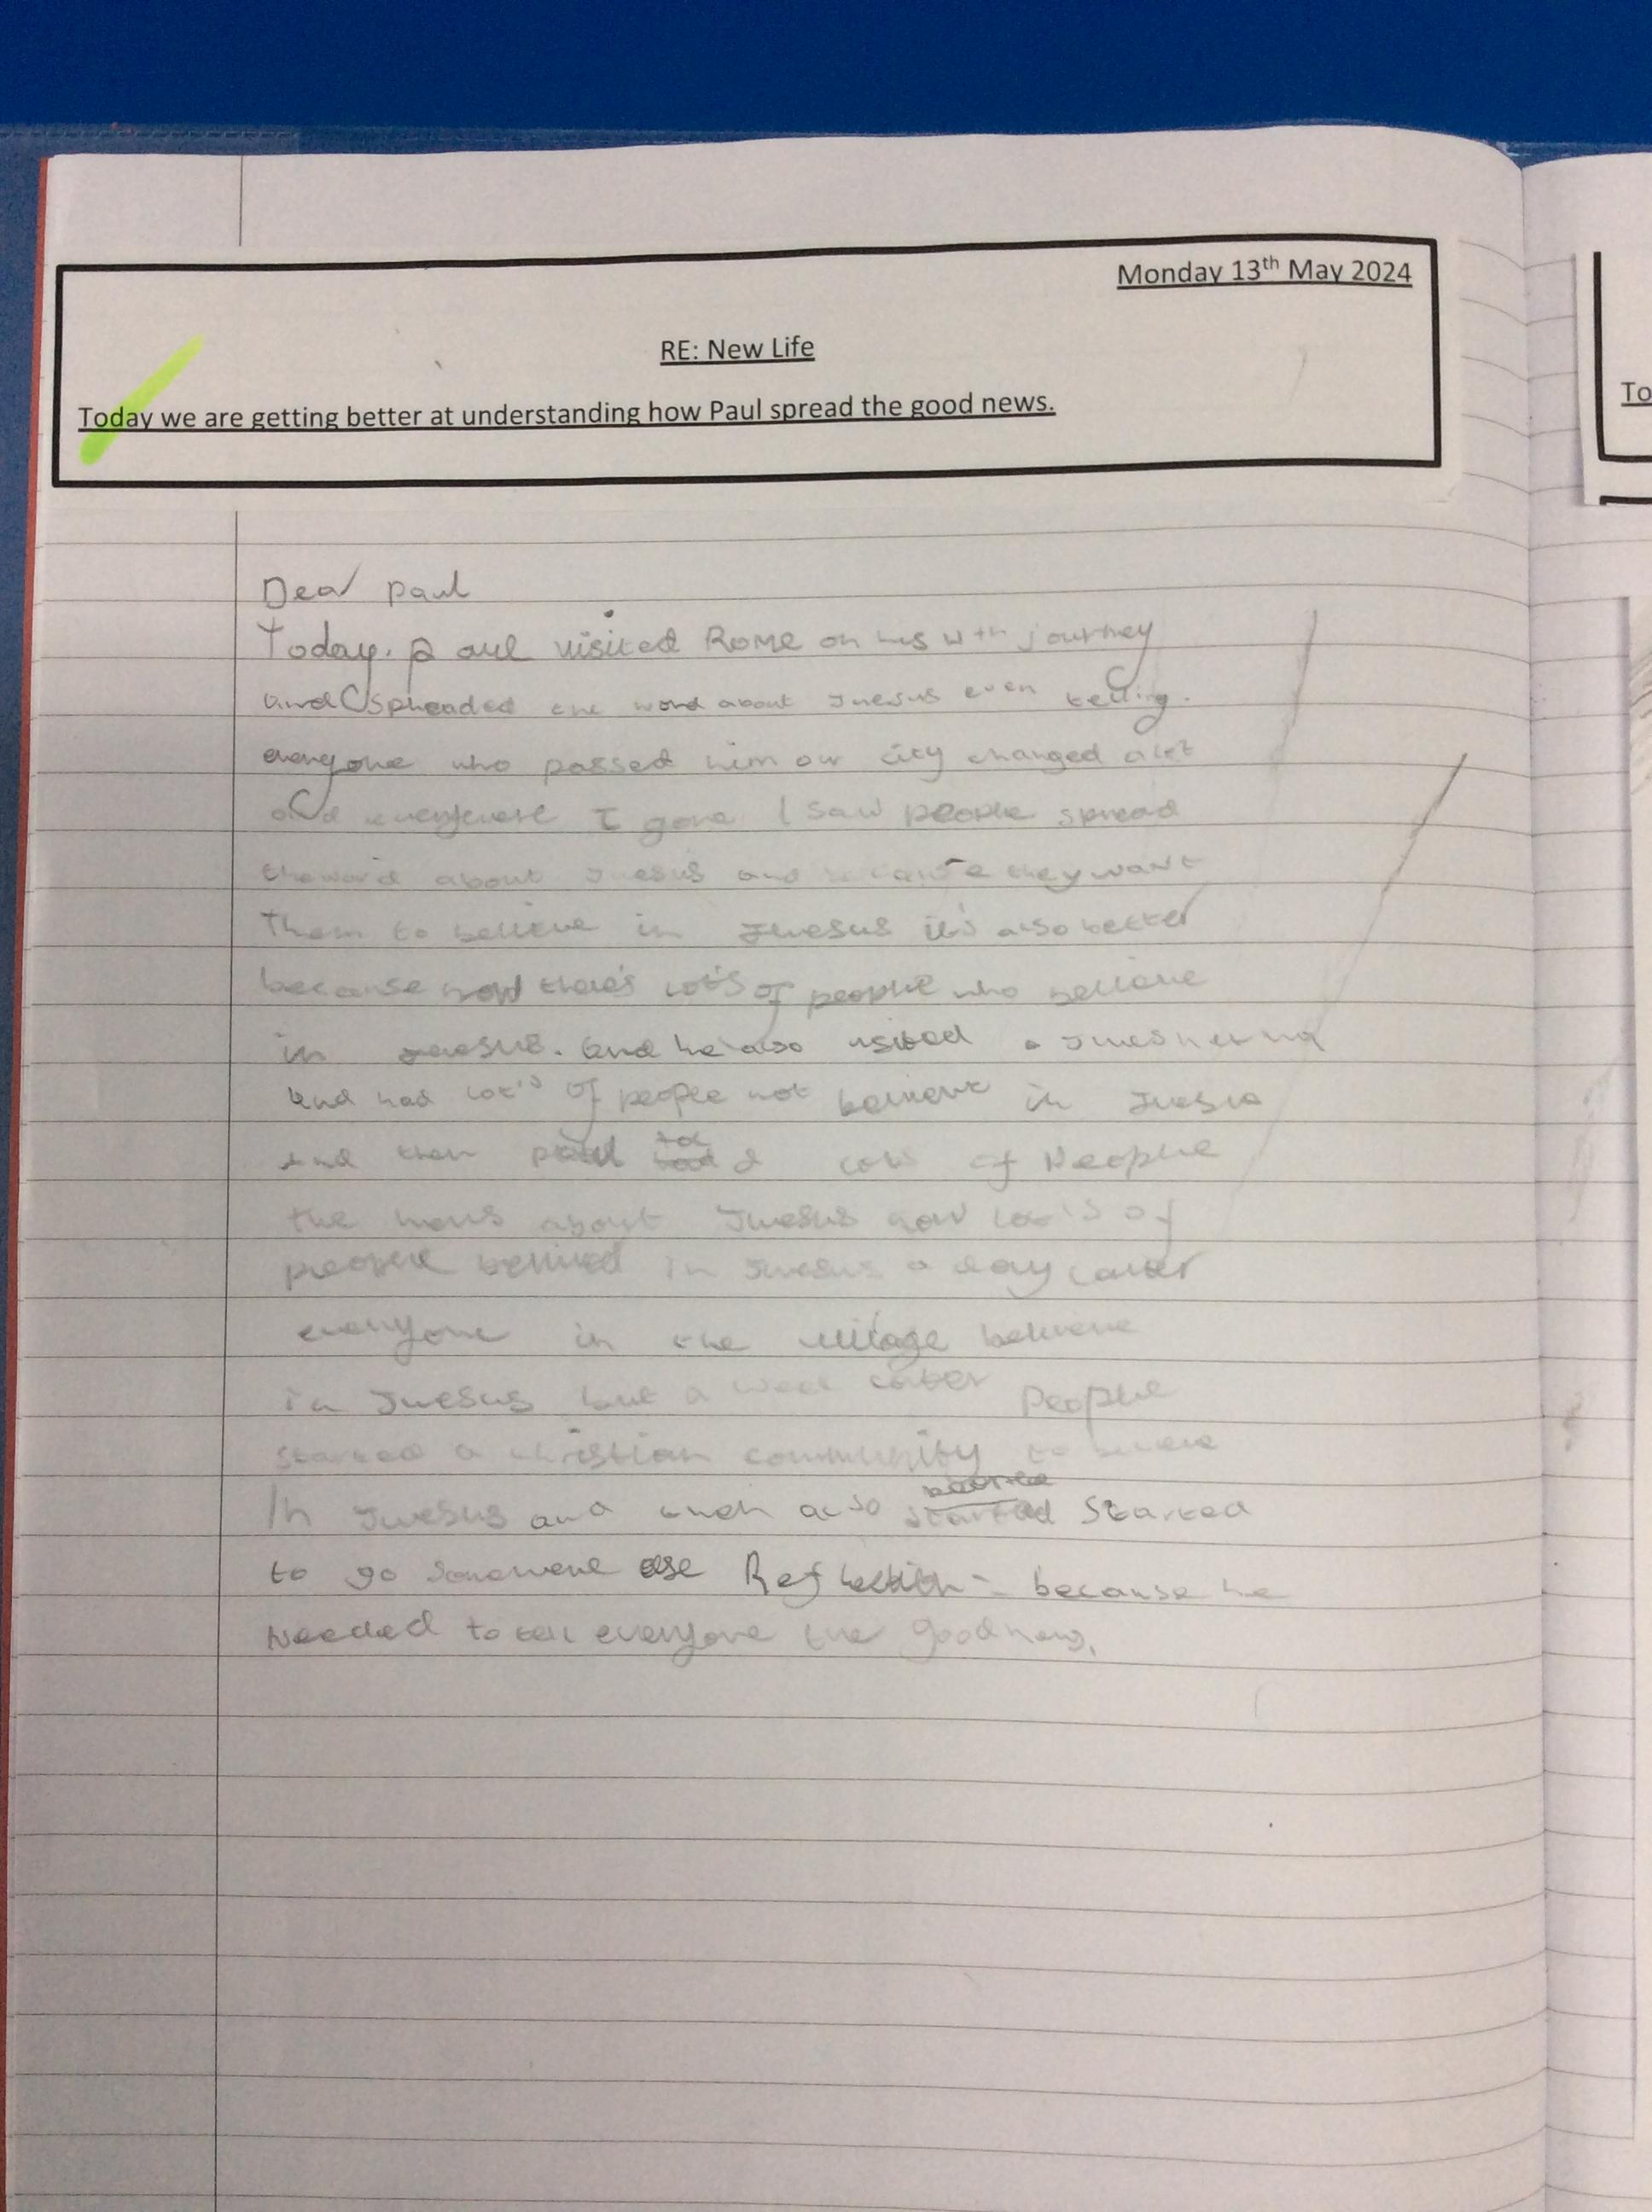 Monday 13th May 2024
RE: New Life
Today we are getting better at understanding how Paul spread the good news.
To
Dear Paul
Today. Paul visited Rome on his 4th journey
and spreaded the word about Juesus even telling.
everyone who passed him our city changed alot
and I gone I saw people spread
theword about Juesus and they want
them to believe in Juesus it's also better
because now there's lot's of people who believe
in Juesus. and he also visited a
and had lot's of people not believe in
and then paul told lots of People
the news about Juesus now lot's of
people belived in Juesus a day later
everyone in the village believe
in Juesus but a week later People
started a christian community to
In Juesus and also started started
to go somewere else Reflection - because he
Needed to tell everyone the good news.